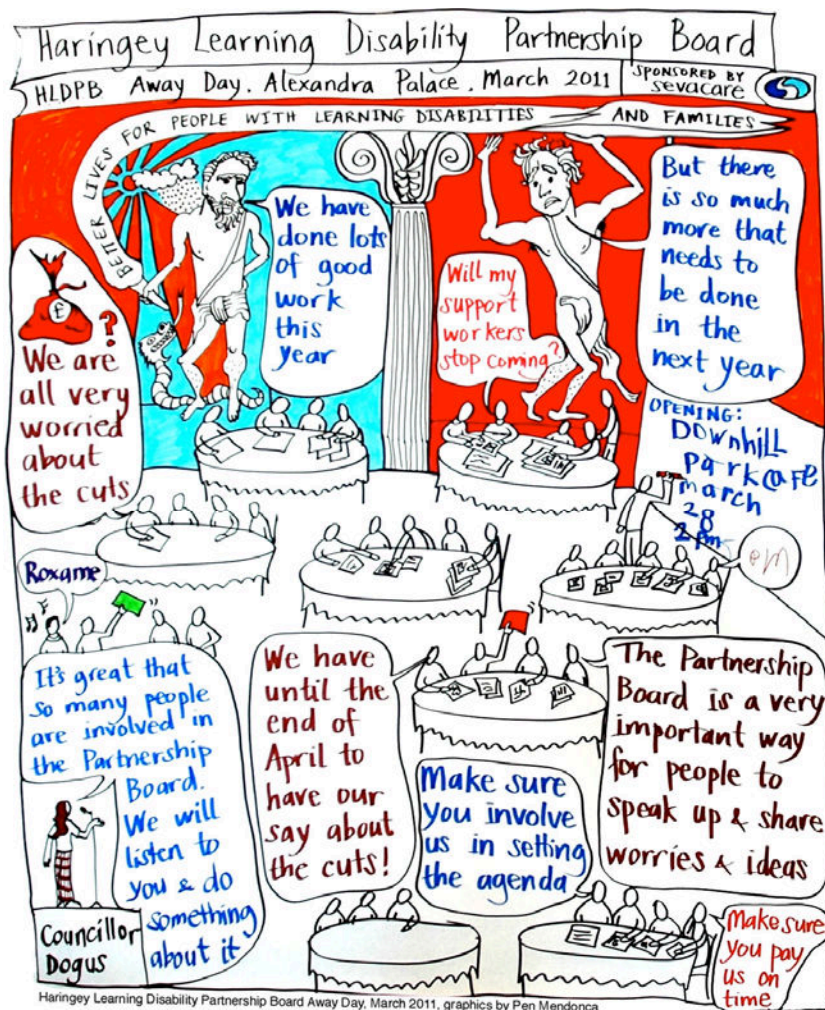 Haringey Learning Disability Partnership Board
HLDPB Away Day. Alexandra Palace. March 2011
SPONSORED BY
sevacare
BETTER LIVES FOR PEOPLE WITH LEARNING DISABILITIES AND FAMILIES
We have
done lots
of good
work
this
year
But there
is so much
more that
needs to
be done
in the
next year
£
?
We are
all very
worried
about
the cuts
Will my
support
workers
stop coming?
OPENING:
Downhill
park cafe
march
28
2pm
em
Roxame
It's great that
so many people
are involved in
the Partnership
Board.
We will
listen to
you & do
something
about it
Councillor
Dogus
We have
until the
end of
April to
have our
say about
the cuts!
Make sure
you involve
us in setting
the agenda
The Partnership
Board is a very
important way
for people to
speak up & share
worries & ideas
Make sure
you pay
us on
time
Haringey Learning Disability Partnership Board Away Day, March 2011, graphics by Pen Mendonca